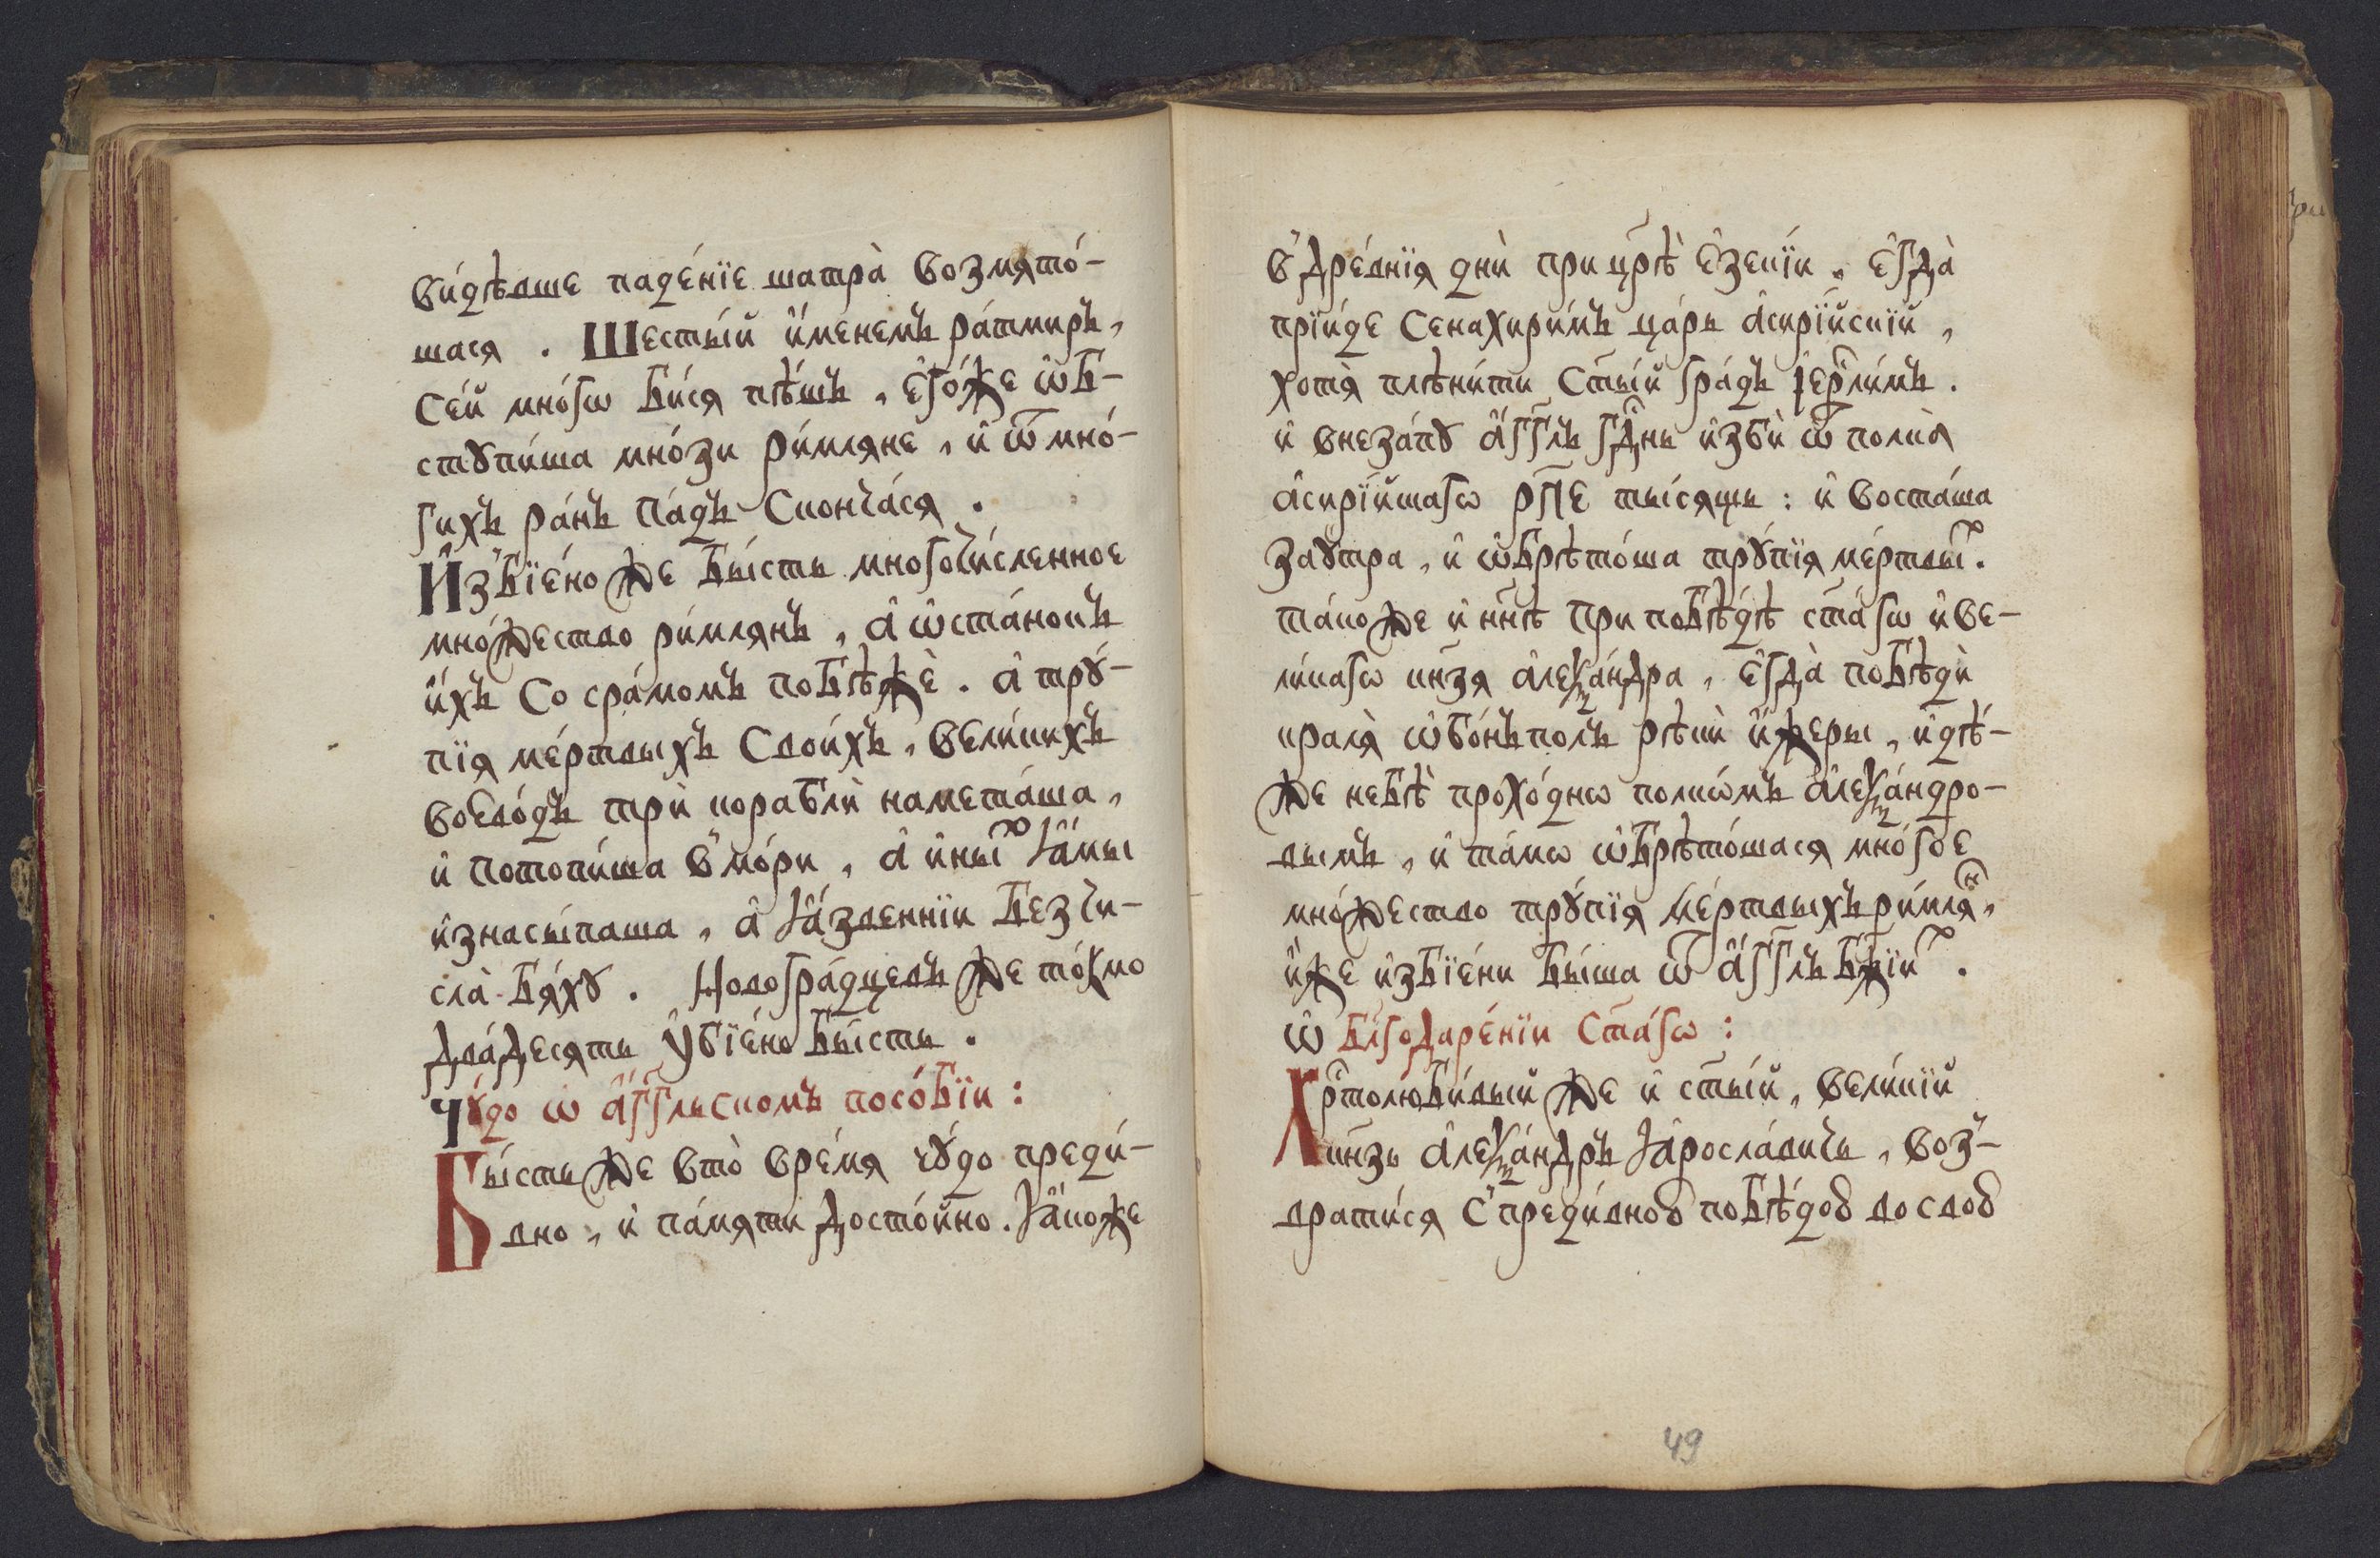 ви́дѣвше паде́нїе шатра̀ возмято́-
шася . Шесты́й и҆́менемъ ра́тмиръ,
Се́й мно́гѡ би́ся пѣ́шъ, є҆го́же ѡ҆б-
стꙋпи́ша мно́зи ри́мляне, и҆ ѿ мно́-
гихъ ра́нъ па́дъ сконча́ся .
И҆збїе́но же бы́сть многочи́сленное
мно́жество ри́млянъ, а҆ ѡ҆ста́нокъ
и҆́хъ со сра́момъ побѣжѐ . а҆ трꙋ́-
пїя ме́ртвыхъ свои́хъ, вели́кихъ
воево́дъ трѝ кораблѝ намета́ша,
и҆ потопи́ша в мо́ри, а҆ и҆ны́х ꙗ҆́мы
и҆знасы́паша, а҆ ꙗ҆́звеннїи без чи-
сла̀ бя́хꙋ . Новогра́дцевъ же то́кмо
два́десять ᲂу҆бїе́но бы́сть .
Чꙋ́до ѡ҆ а҆́гг҃льскомъ посо́бїи :
Бы́сть же вто̀ вре́мя чꙋ́до преди́-
вно, и҆ па́мяти досто́йно . ꙗ҆́коже
в дре́внїя днѝ при цр҃ѣ̀ є҆зекі́и, є҆гда̀
прїи́де Сенахири́мъ ца́рь а҆сирі́йскїй,
хотя̀ плѣни́ти ст҃ы́й гра́дъ і҆ерⷭ҇ли́мъ .
и҆ внеза́пꙋ а҆́гг҃лъ гдⷭ҇нь и҆збѝ ѿ полка̀
а҆сирі́йскагѡ рп҃е ты́сящь : и҆ воста́ша
заꙋтра, и҆ ѡ҆брѣто́ша трꙋ́пїя ме́ртвых .
та́коже и҆ нн҃ѣ при побѣ́дѣ ст҃а́гѡ и҆ ве-
ли́кагѡ кн҃зя а҆леѯа́ндра, є҆гда̀ побѣдѝ
краля̀ ѡ҆бо́нъ по́лъ рѣкѝ и҆́жеры, и҆дѣ́-
же не бѣ̀ прохо́днѡ полкѡ́мъ а҆леѯа́ндро-
вымъ, и҆ та́мѡ ѡ҆брѣто́шася мно́гое
мно́жество трꙋ́пїя ме́ртвыхъ ри́млян,
и҆́же и҆збїе́ни бы́ша ѿ а҆́гг҃лъ бж҃їих .
ѡ҆ бл҃годаре́нїи ст҃а́гѡ :
Хрⷭ҇толюби́вый же и҆ ст҃ы́й, вели́кїй
кн҃зь а҆леѯа́ндръ ꙗ҆росла́вичь, воз-
врати́ся с преди́вною побѣ́дою во свою
49